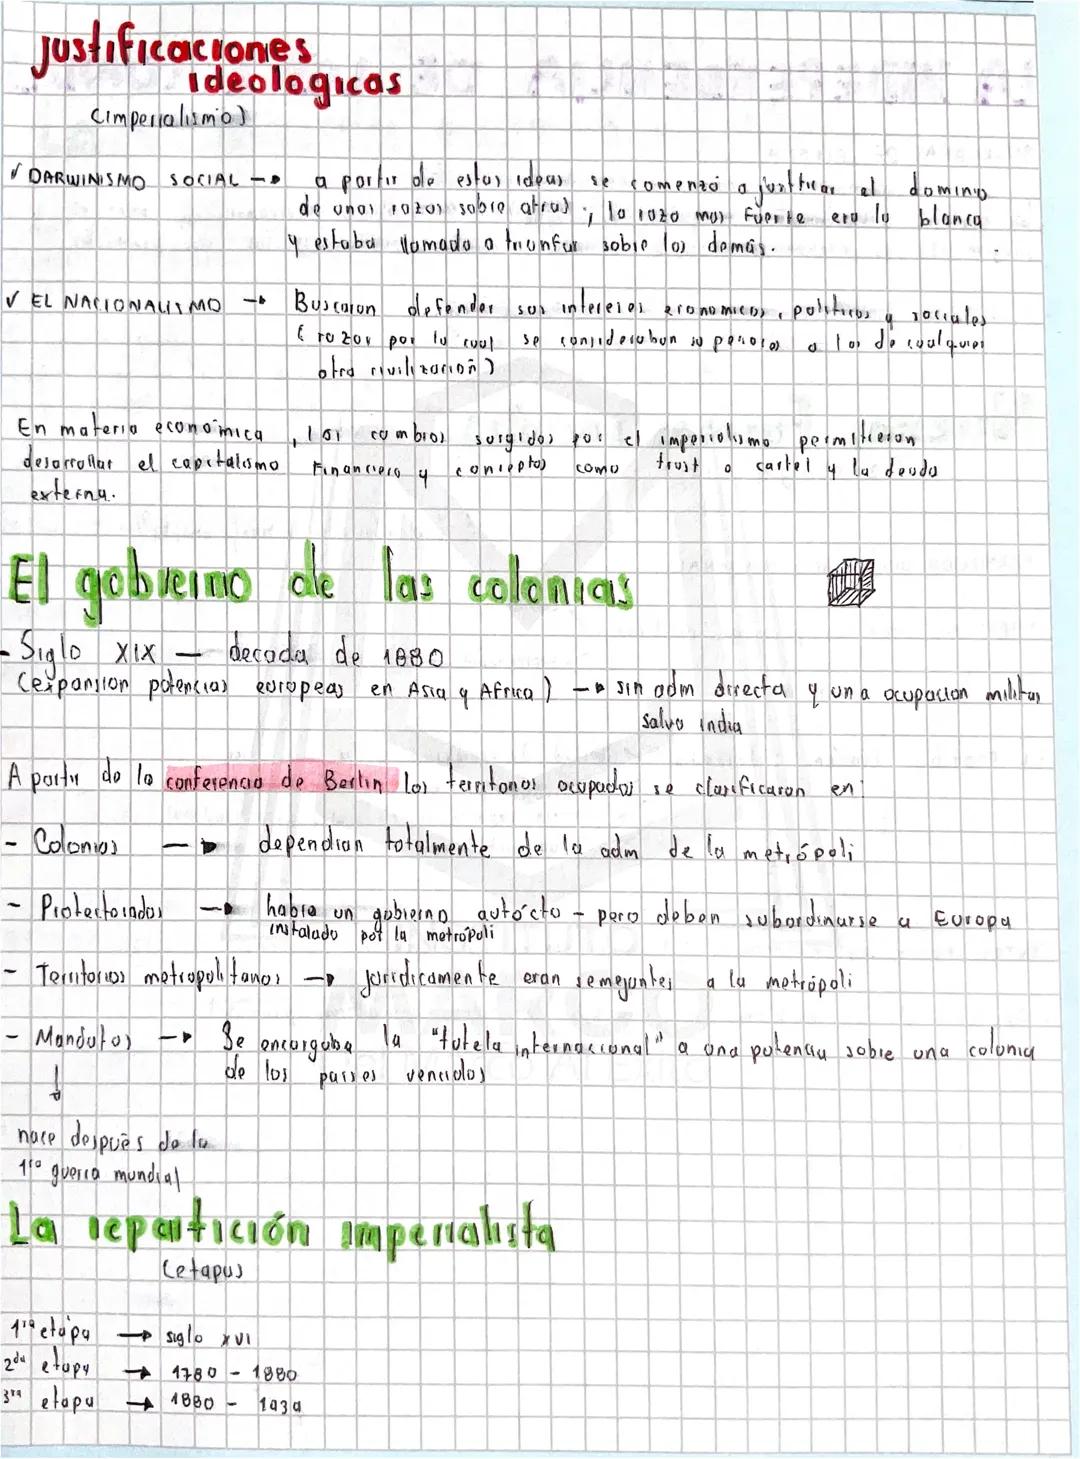 justificaciones
ideologicas
(imperialismo)
✓ DARWINISMO SOCIAL → a partir de estas ideas se comenzó a justificar el dominio
de unas razas sobre otras; la raza mas fuerte era la blanca
y estaba llamada a triunfar sobre los demás.
✓ EL NACIONALISMO → Buscaron defender sus intereses economicos, politicos y sociales
(razon por la cual se consideraban superiores a los de cualquier
otra civilización)
En materia económica, los cambios surgidos por el imperialismo permitieron
desarrollar el capitalismo financiero y conceptos como trust o cartel y la deuda
externa.
El gobierno de las colonias
- Siglo XIX — decada de 1880
(expansion potencias europeas en Asia y Africa) → sin adm directa y una ocupacion militar
salvo india
A partir de la conferencia de Berlin los territorios ocupados se clasificaron en:
- Colonias → dependian totalmente de la adm de la metrópoli
- Protectorados → habia un gobierno autócto - pero deben subordinarse a Europa
instalado por la metrópoli
- Territorios metropolitanos → juridicamente eran semejantes a la metrópoli
- Mandatos → Se encargaba la "tutela internacional" a una potencia sobre una colonia
de los paises vencidos
↓
nace después de la
1ra guerra mundial
La repartición imperialista
(etapas)
1ra etapa → siglo XVI
2da etapa → 1780 - 1880
3ra etapa → 1880 - 1939